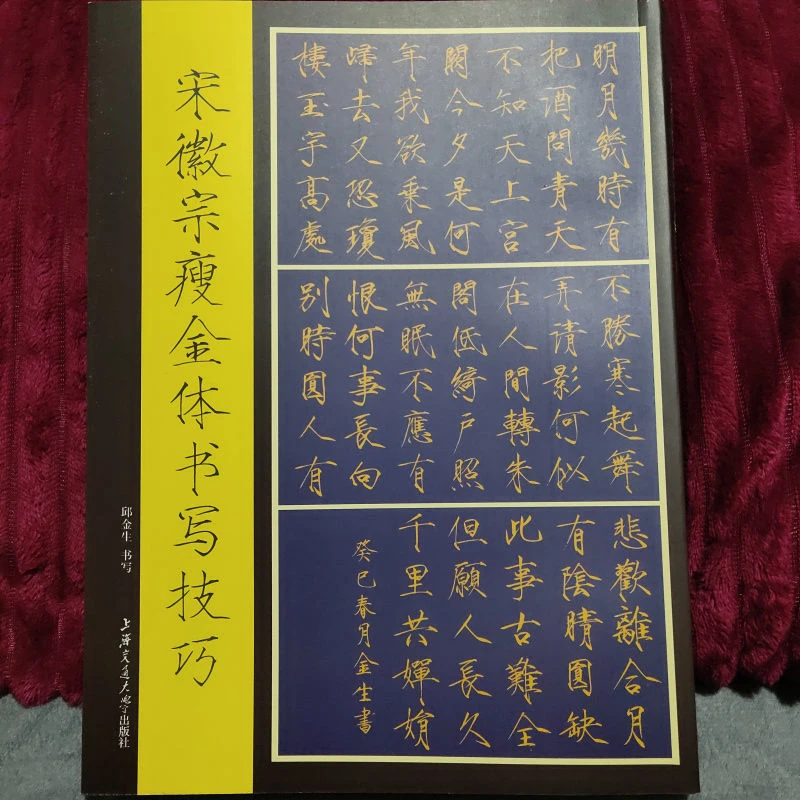 宋徽宗瘦金体书写技巧
邱金生 书写
上海交通大学出版社
明月幾時有
把酒問青天
不知天上宮
闕今夕是何
年我欲乘風
歸去又恐瓊
樓玉宇高處
不勝寒起舞
弄清影何似
在人間轉朱
閣低綺戶照
無眠不應有
恨何事長向
別時圓人有
悲歡離合月
有陰晴圓缺
此事古難全
但願人長久
千里共嬋娟
癸巳春月金生書